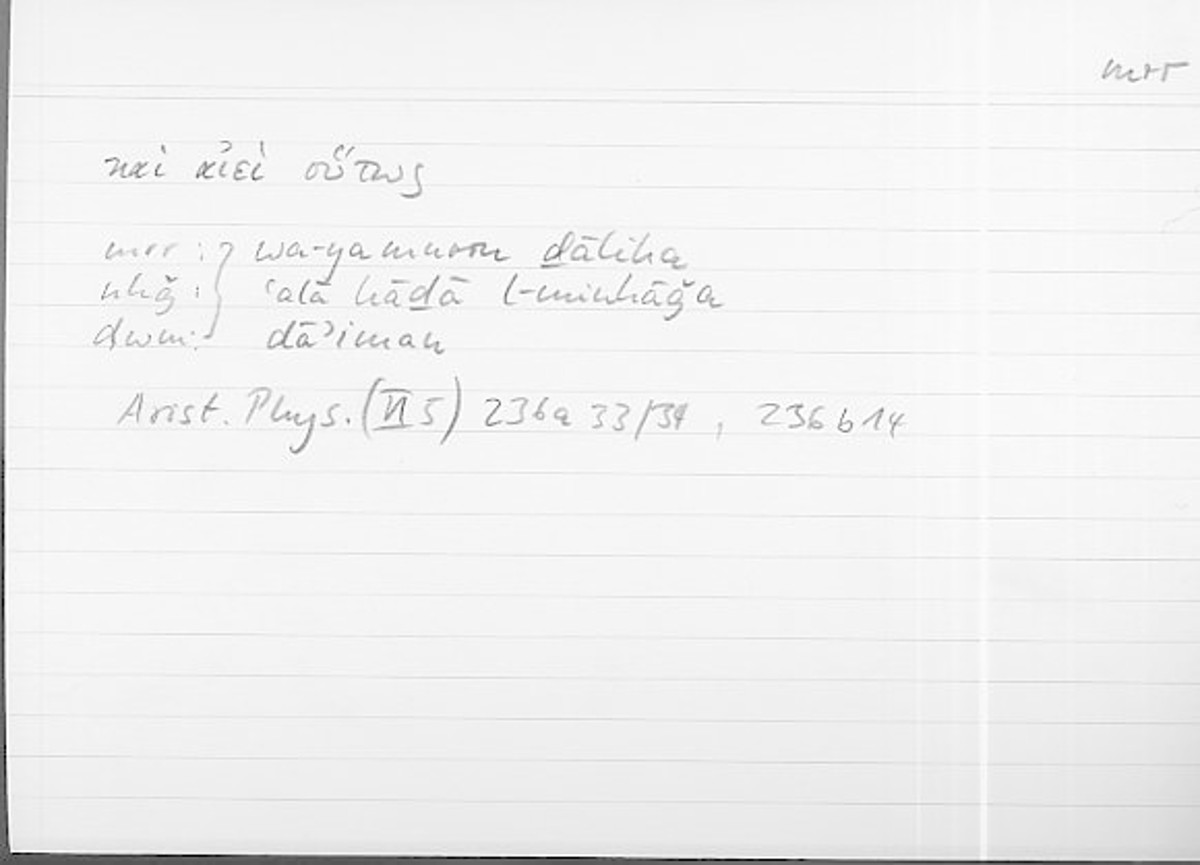 mrr
καὶ αἰεὶ οὕτως
mrr : wa-yamurru ḏālika
nhǧ : ʿalā hāḏā l-minhāǧa
dwm : dāʾiman
Arist. Phys. (VI 5) 236a 33/34 , 236 b 14